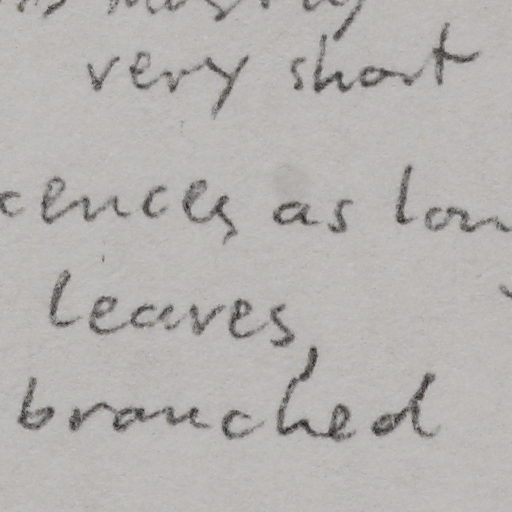 very short
cences as lon
leaves,
branched